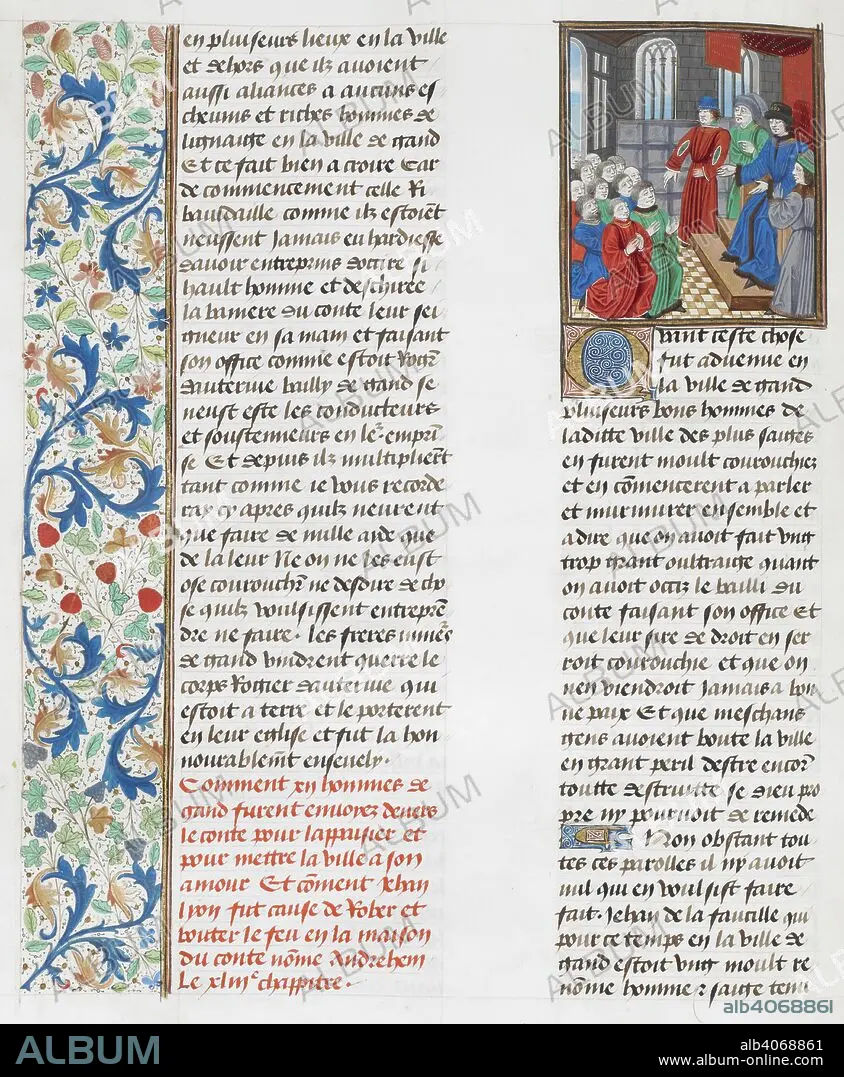 en pluiseurs lieux en la ville
et dehors que ilz avoient
aussi aliances a aucuns es
chevins et riches hommes de
lignaige en la ville de gand
Et ce fait bien a croire Car
de commencement celle Ri
bauldaille comme ilz estoiẽt
neussent Jamais eu hardiesse
davoir entreprins doccire si
hault homme et deschirer
la baniere du conte leur sei
gneur en sa main et faisant
son office comme estoit Rogr̃
dauterive bailly de gand se
neust este les conducteurs
et soustenneurs en ler̃ emprĩ
se Et depuis ilz multiplierẽt
tant comme ie vous recorde
ray cy apres quilz neurent
que faire de nulle aide que
de la leur Ne on ne les eust
ose courouchr̃ ne desdire de cho
se quilz voulsissent entreprẽ
dre ne faire. les freres mineˢs
de gand vindrent querre le
corps Rogier dauterive qui
estoit a terre et le porterent
en leur eglise et fut la hon
nourablem̃t ensevely.
Comment xij hommes de
gand furent envoyez devers
le conte pour lappaisier et
pour mettre la ville a son
amour Et cõment Jehan
lyon fut cause de Rober et
bouter le feu en la maison
du conte nõme Andrehem
Le xliiiᵉ chappitre.
Quant ceste chose
fut advenue en
la ville de gand
pluiseurs bons hommes de
laditte ville des plus saiges
en furent moult courouchiez
et en cõmencerent a parler
et murmurer ensemble et
a dire que on avoit fait vng
trop grant oultraige quant
on avoit occiz le bailli du
conte faisant son office Et
que leur sire de droit en ser
roit courouchie et que on
nen viendroit Jamais a bon
ne paix Et que meschans
gens avoient boute la ville
en grant peril destre encor̃
toutte destruitte se dieu pro
pre ny pourvoit de remede
Non obstant tou
tes ces parolles il ny avoit
nul qui en voulsist faire
fait. Jehan de la faucille qui
pour ce temps en la ville de
gand estoit vng moult re
nõme homme z saige tenu
ALBUM
alb4068861
ALBUM
alb4068861
www.album-online.com